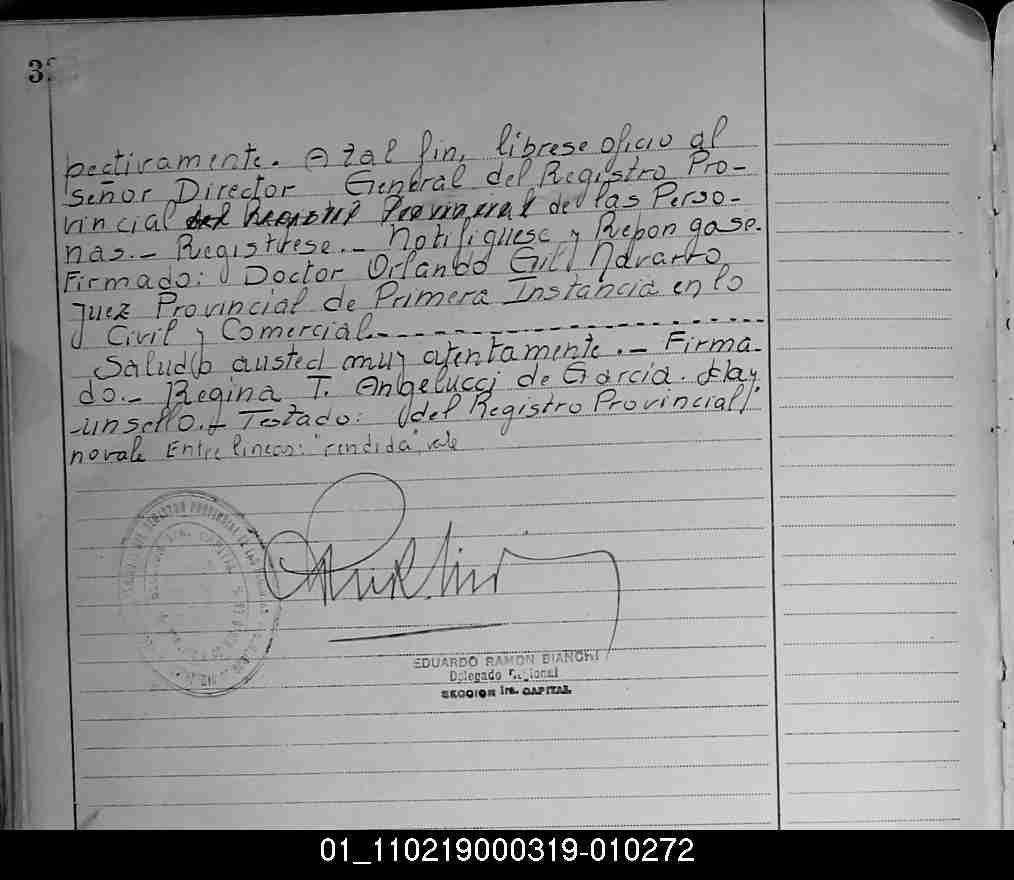 3
pectivamente. A tal fin, librese oficio al
señor Director General del Registro Pro-
vincial del Registro Provincial de las Perso-
nas.- Registrese.- Notifiquese y Repongase.
Firmado: Doctor Orlando Gil Navarro
Juez Provincial de Primera Instancia en lo
Civil y Comercial.---
Saludo a usted muy atentamente.- Firma-
do.- Regina T. Angelucci de Garcia. Hay
un sello.- Testado: del Registro Provincial/
no vale Entre lineas: "rendida" vale
EDUARDO RAMON BIANCHI
Delegado Regional
SECCION 1ra. CAPITAL
01_110219000319-010272